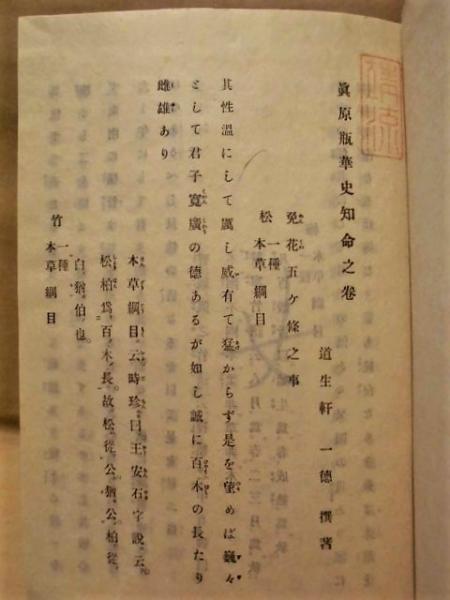 眞原瓶華史知命之卷
道生軒 一德 撰著
免花五ケ條之事
松 一種 本草綱目
其性溫にして厲し威有て猛からず是を望めば巍々
として君子寬廣の德あるが如し誠に百木の長たり
雌雄あり
本草綱目云時珍曰王安石字說云。
松柏爲百木長。故松從公。猶公。柏從
白。猶伯也。
竹 一種 本草綱目